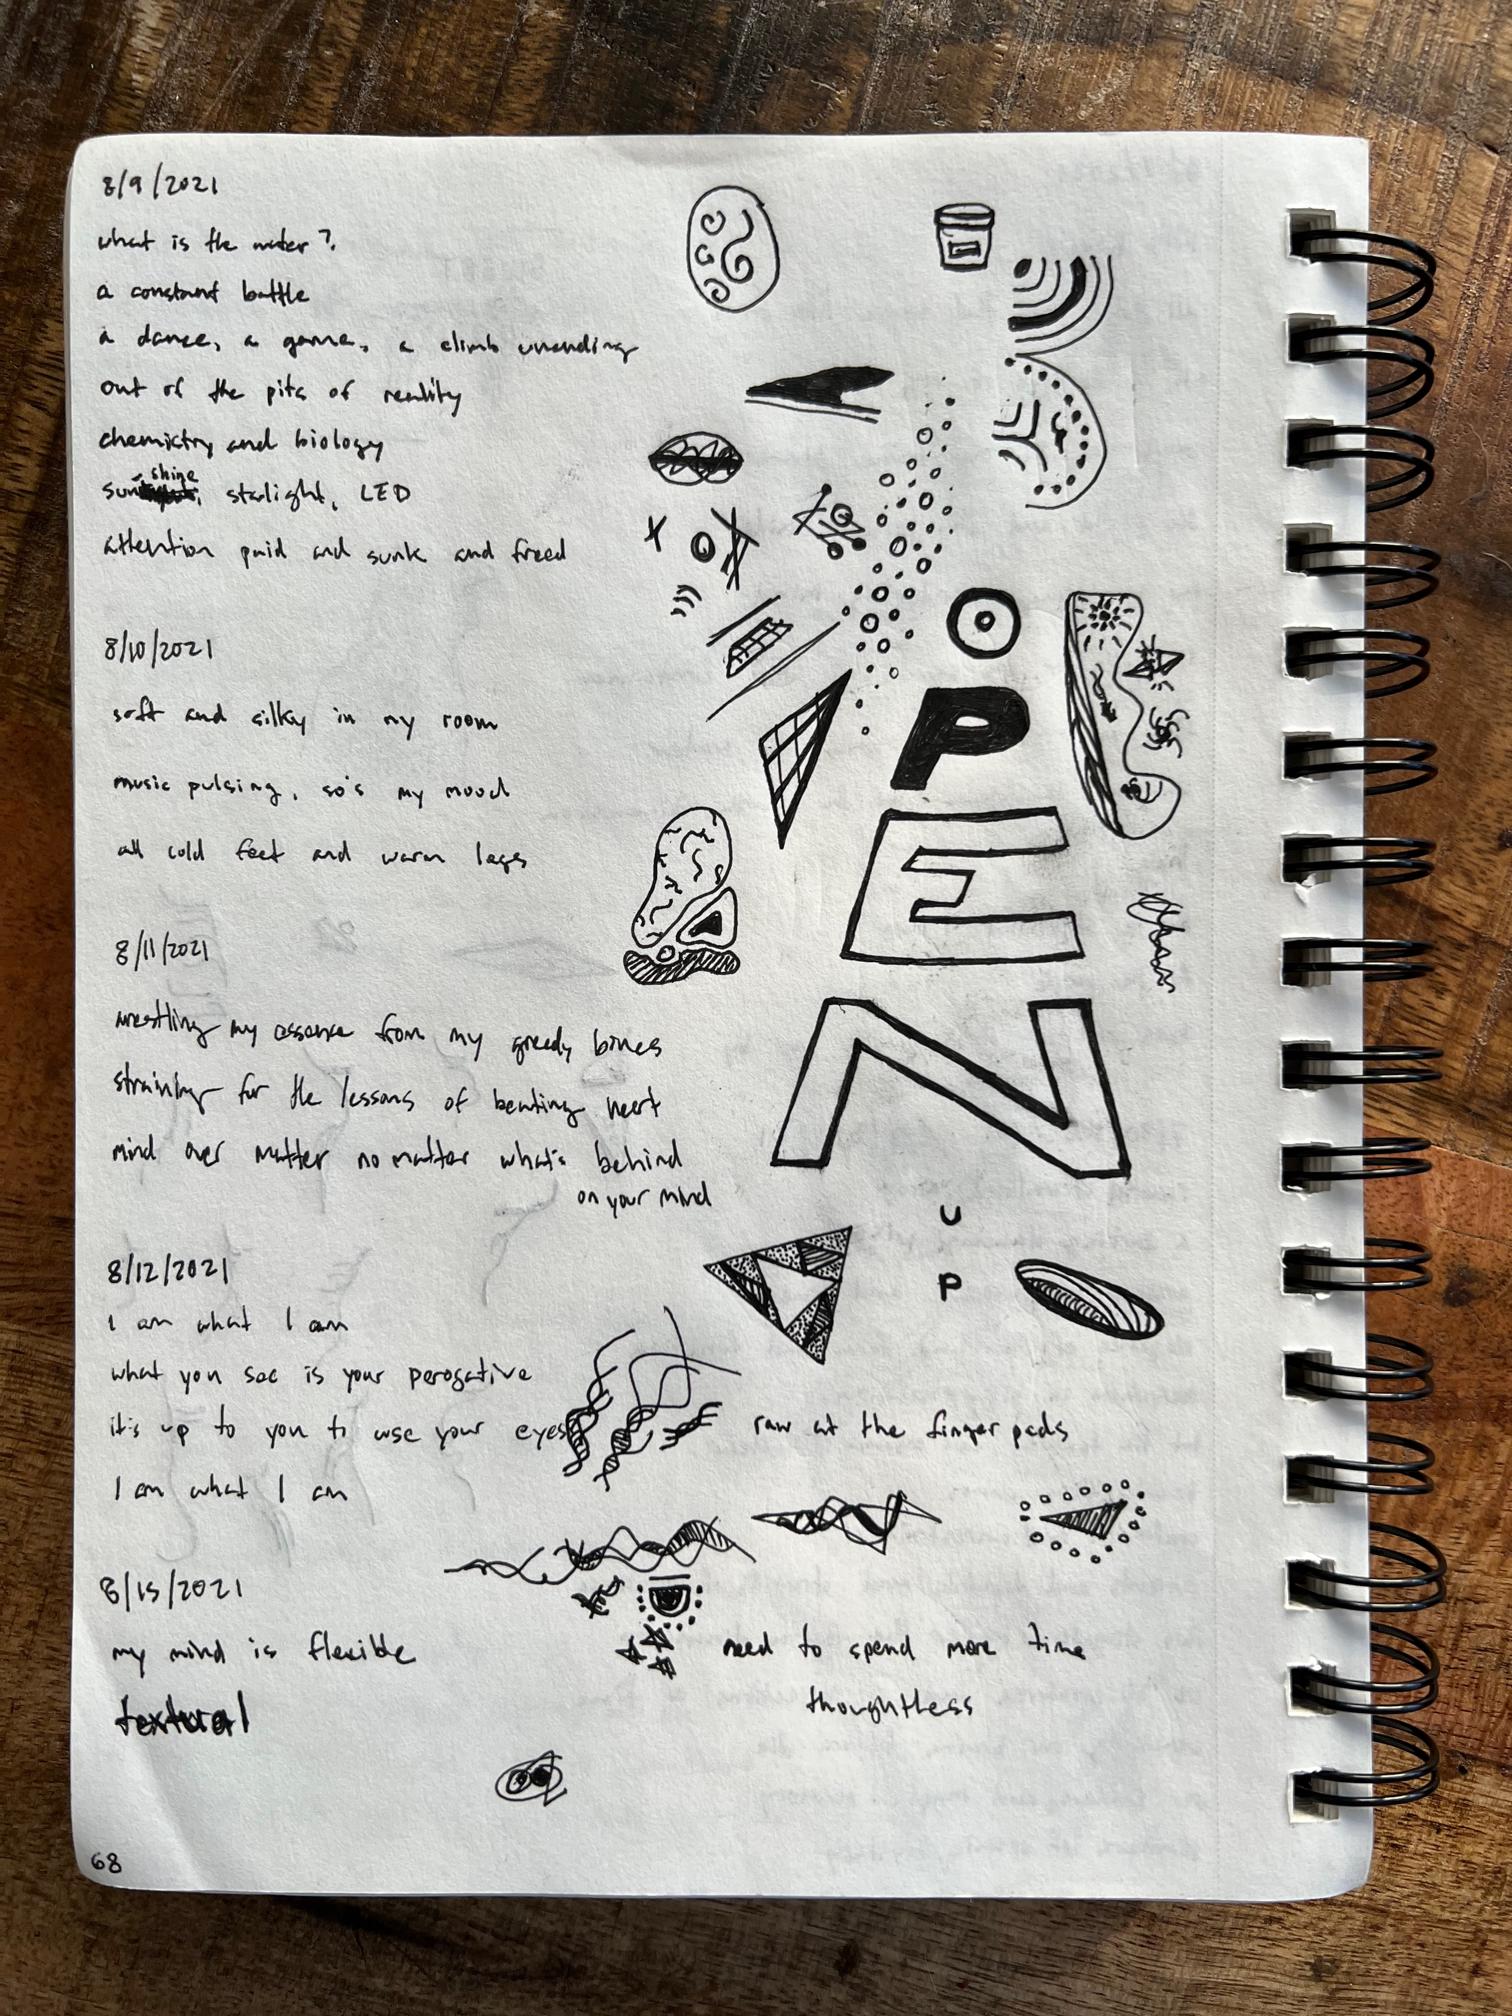 8/9/2021
what is the water?
a constant battle
a dance, a game, a climb unending
out of the pits of reality
chemistry and biology
sunshine, starlight, LED
attention paid and sunk and freed
8/10/2021
soft and silky in my room
music pulsing, so's my mood
all cold feet and warm legs
8/11/2021
wrestling my essence from my greedy bones
straining for the lessons of beating heart
mind over matter no matter what's behind
on your mind
8/12/2021
I am what I am
what you see is your perogative
it's up to you to use your eyes
I am what I am
8/15/2021
my mind is flexible
textural
O
P
E
N
U
P
raw at the finger pads
need to spend more time
thoughtless
68